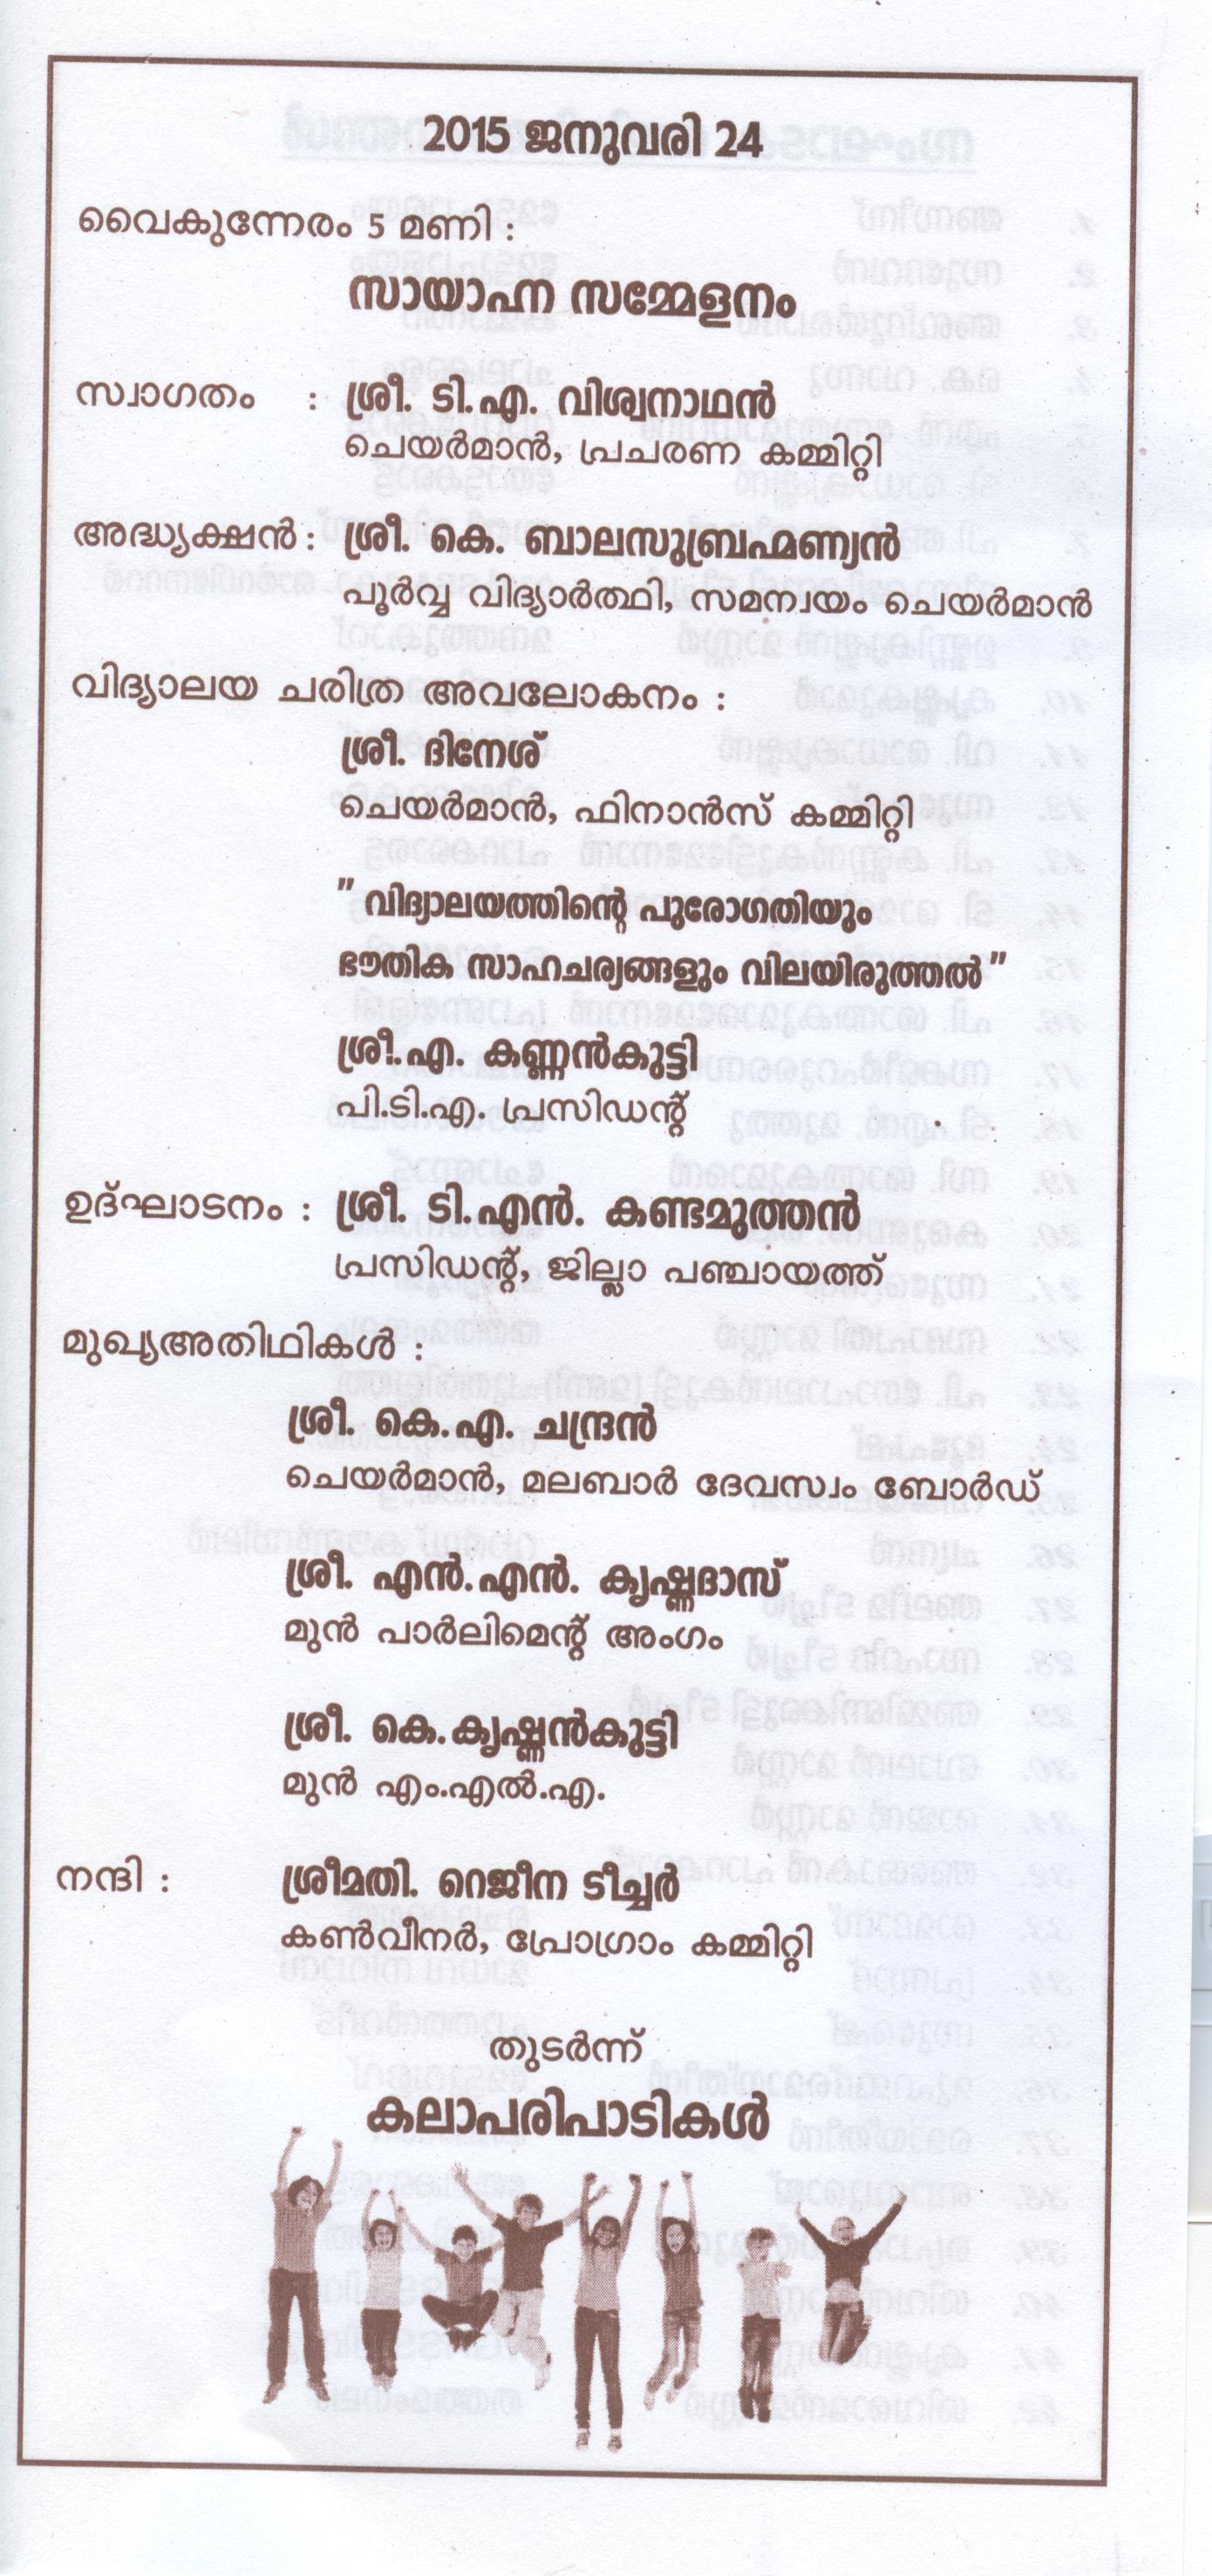 2015 ജനുവരി 24
വൈകുന്നേരം 5 മണി :
സായാഹ്ന സമ്മേളനം
സ്വാഗതം : ശ്രീ. ടി.എ. വിശ്വനാഥൻ
ചെയർമാൻ, പ്രചരണ കമ്മിറ്റി
അദ്ധ്യക്ഷൻ : ശ്രീ. കെ. ബാലസുബ്രഹ്മണ്യൻ
പൂർവ്വ വിദ്യാർത്ഥി, സമന്വയം ചെയർമാൻ
വിദ്യാലയ ചരിത്ര അവലോകനം :
ശ്രീ. ദിനേശ്
ചെയർമാൻ, ഫിനാൻസ് കമ്മിറ്റി
" വിദ്യാലയത്തിന്റെ പുരോഗതിയും
ഭൗതിക സാഹചര്യങ്ങളും വിലയിരുത്തൽ "
ശ്രീ.എ. കണ്ണൻകുട്ടി
പി.ടി.എ. പ്രസിഡന്റ്
ഉദ്ഘാടനം : ശ്രീ. ടി.എൻ. കണ്ടമുത്തൻ
പ്രസിഡന്റ്, ജില്ലാ പഞ്ചായത്ത്
മുഖ്യഅതിഥികൾ :
ശ്രീ. കെ.എ. ചന്ദ്രൻ
ചെയർമാൻ, മലബാർ ദേവസ്വം ബോർഡ്
ശ്രീ. എൻ.എൻ. കൃഷ്ണദാസ്
മുൻ പാർലിമെന്റ് അംഗം
ശ്രീ. കെ.കൃഷ്ണൻകുട്ടി
മുൻ എം.എൽ.എ.
നന്ദി : ശ്രീമതി. റെജീന ടീച്ചർ
കൺവീനർ, പ്രോഗ്രാം കമ്മിറ്റി
തുടർന്ന്
കലാപരിപാടികൾ